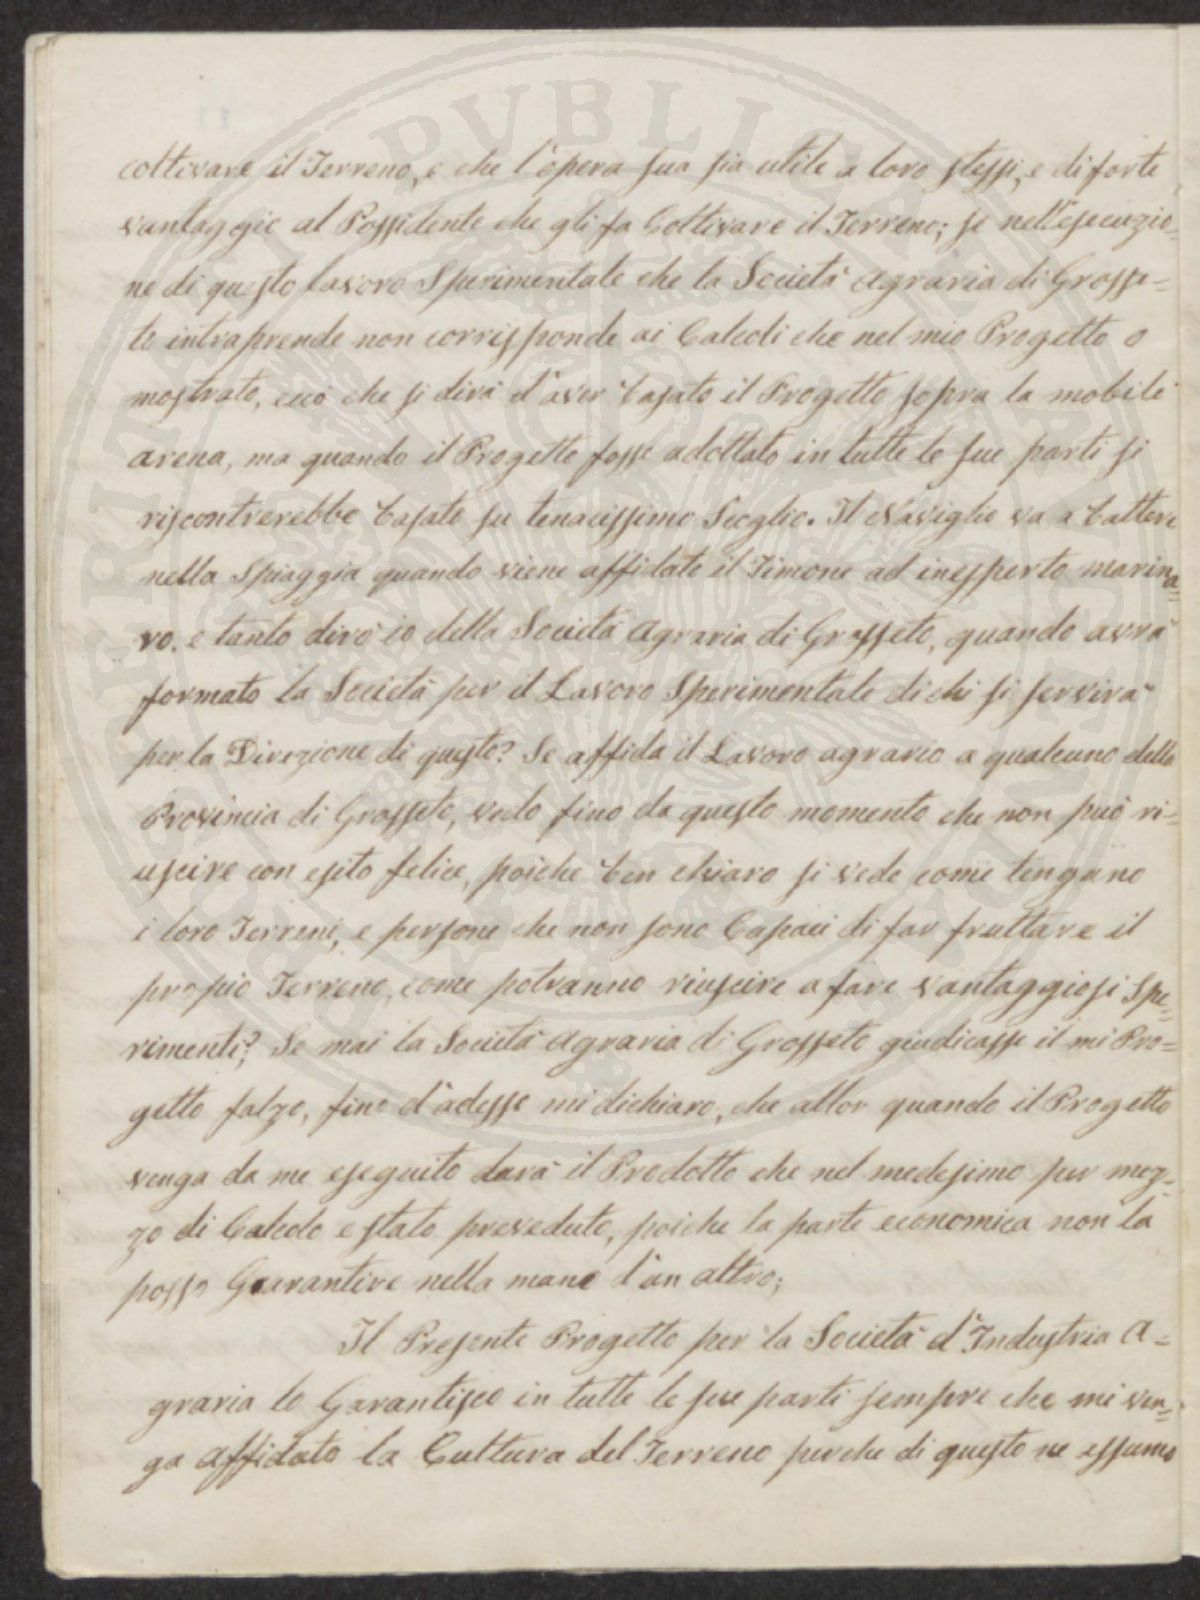 PUBLICAE UTILITATI
PROSPERITATI
coltivare il Terreno, e che l'opera sua sia utile a loro stessi, e di forte
vantaggio al Possidente che gli fa Coltivare il Terreno; se nell'esecuzio=
ne di questo lavoro Sperimentale che la Società Agraria di Grosse=
to intraprende non corrisponde ai Calcoli che nel mio Progetto o
mostrato, ecco che si dirà d'aver basato il Progetto sopra la mobile
arena, ma quando il Progetto fosse adottato in tutte le sue parti si
riscontrerebbe basato su tenacissimo Scoglio. Il Naviglio va a battere
nella Spiaggia quando viene affidato il Timone ad inesperto marina=
ro. e tanto dirò io della Società Agraria di Grosseto, quando avrà
formato la Società per il Lavoro Sperimentale di chi si servirà
per la Direzione di questo? Se affida il Lavoro agrario a qualcuno della
Provincia di Grosseto, vedo fino da questo momento che non può ri=
uscire con esito felice, poiche ben chiaro si vede come tengano
i loro Terreni, e persone che non sono Capaci di far fruttare il
propio Terreno, come potranno riuscire a fare vantaggiosi Spe=
rimenti? Se mai la Società Agraria di Grosseto giudicasse il mi Pro=
getto falzo, fino d'adesso mi dichiaro, che allor quando il Progetto
venga da me eseguito darà il Prodotto che nel medesimo per mez=
zo di Calcolo e stato preveduto, poiche la parte economica non la
posso Guarantire nella mano d'un altro;
Il Presente Progetto per la Società d'Industria A=
graria lo Garantisco in tutte le sue parti sempre che mi ven=
ga affidato la Cultura del Terreno perche di questo ne assumo